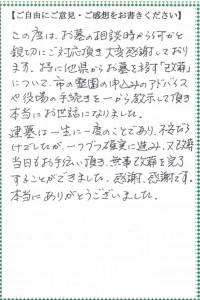 【ご自由にご意見・ご感想をお書きください】
この度は、お墓の相談時から何かと
親切にご対応頂き大変感謝しており
ます。特に他県からお墓を移す「改葬」
について、市の霊園の申込みのアドバイス
や役場の手続きを一から教示して頂き
本当にお世話になりました。
建墓は一生に一度のことであり、不安だら
けでしたが、一つづつ確実に進み、又改葬
当日もお手伝い頂き、無事改葬を完了
することができました。感謝、感謝です。
本当にありがとうございました。